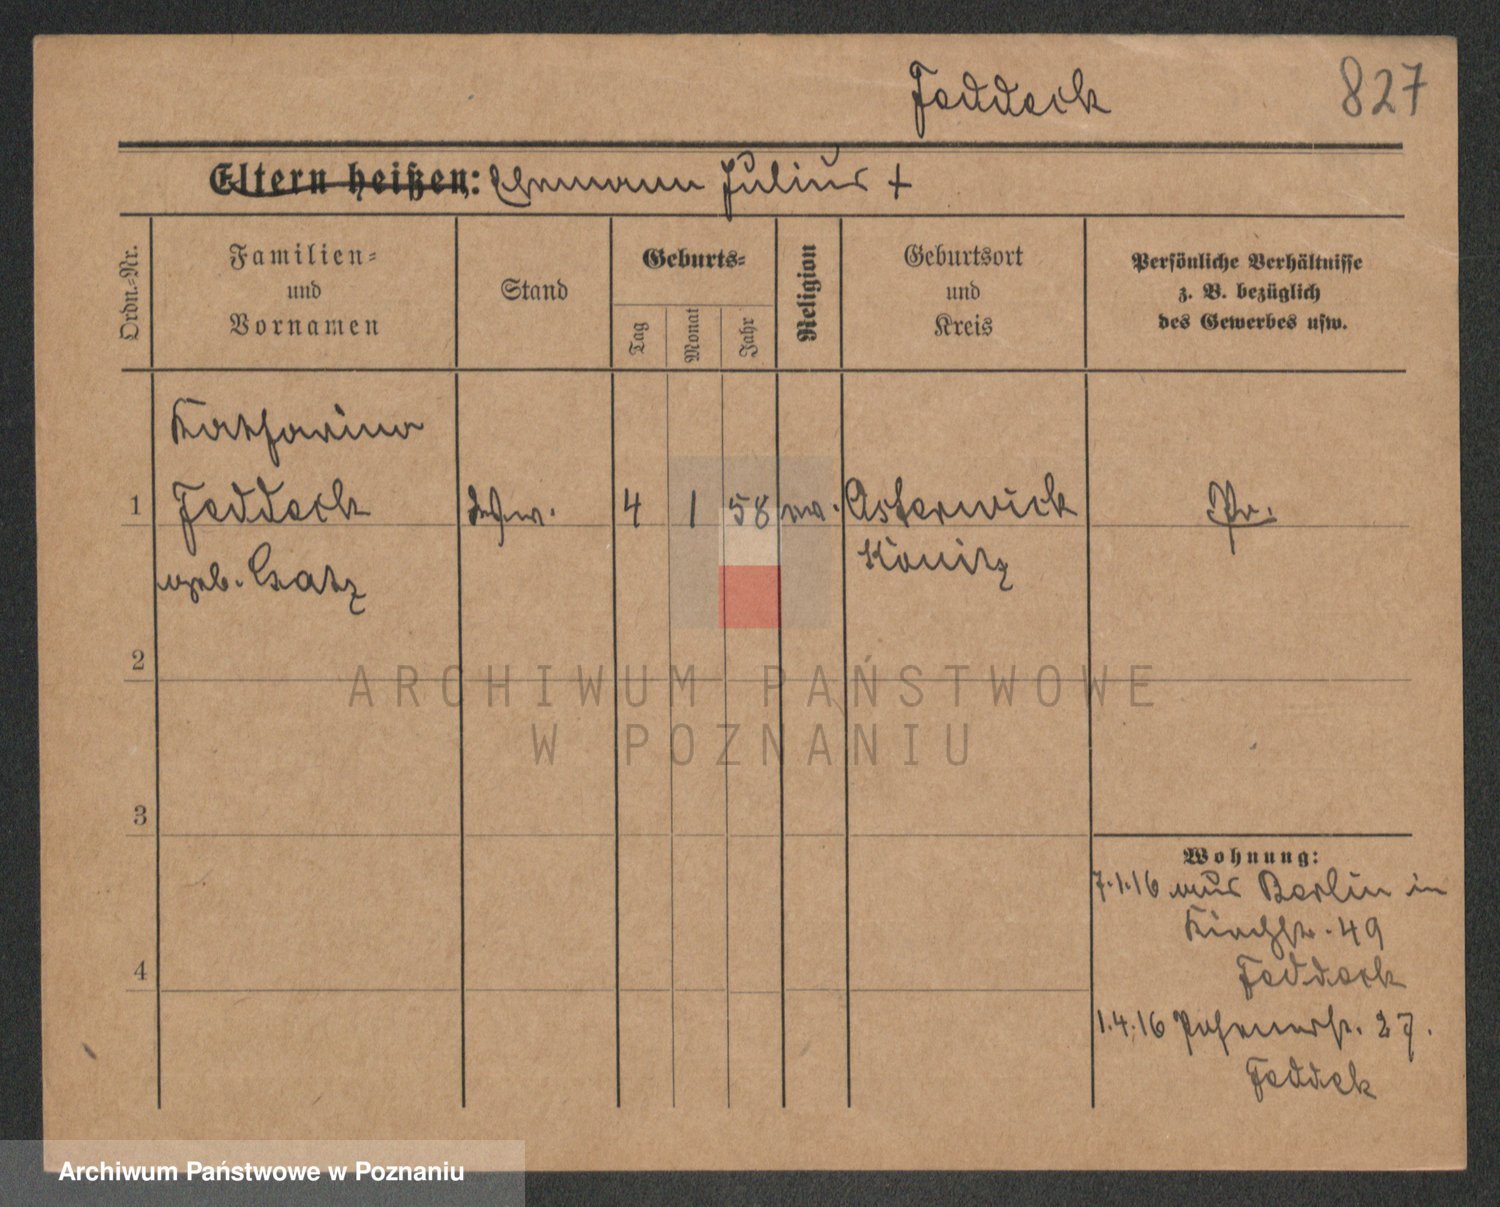 Feddeck
827
Eltern heißen: Ehemann Julius +
Ordn.-Nr.
Familien-
und
Vornamen
Stand
Geburts-
Tag
Monat
Jahr
Religion
Geburtsort
und
Kreis
Persönliche Verhältnisse
z. B. bezüglich
des Gewerbes usw.
Katharina
1 Feddeck 4 1 58 Osterwick Pr.
geb. Gatz Konitz
2
ARCHIWUM PAŃSTWOWE
W POZNANIU
3
Wohnung:
7.1.16 aus Berlin in
Kirchstr. 49
4
Feddeck
1.4.16 27.
Feddek
Archiwum Państwowe w Poznaniu